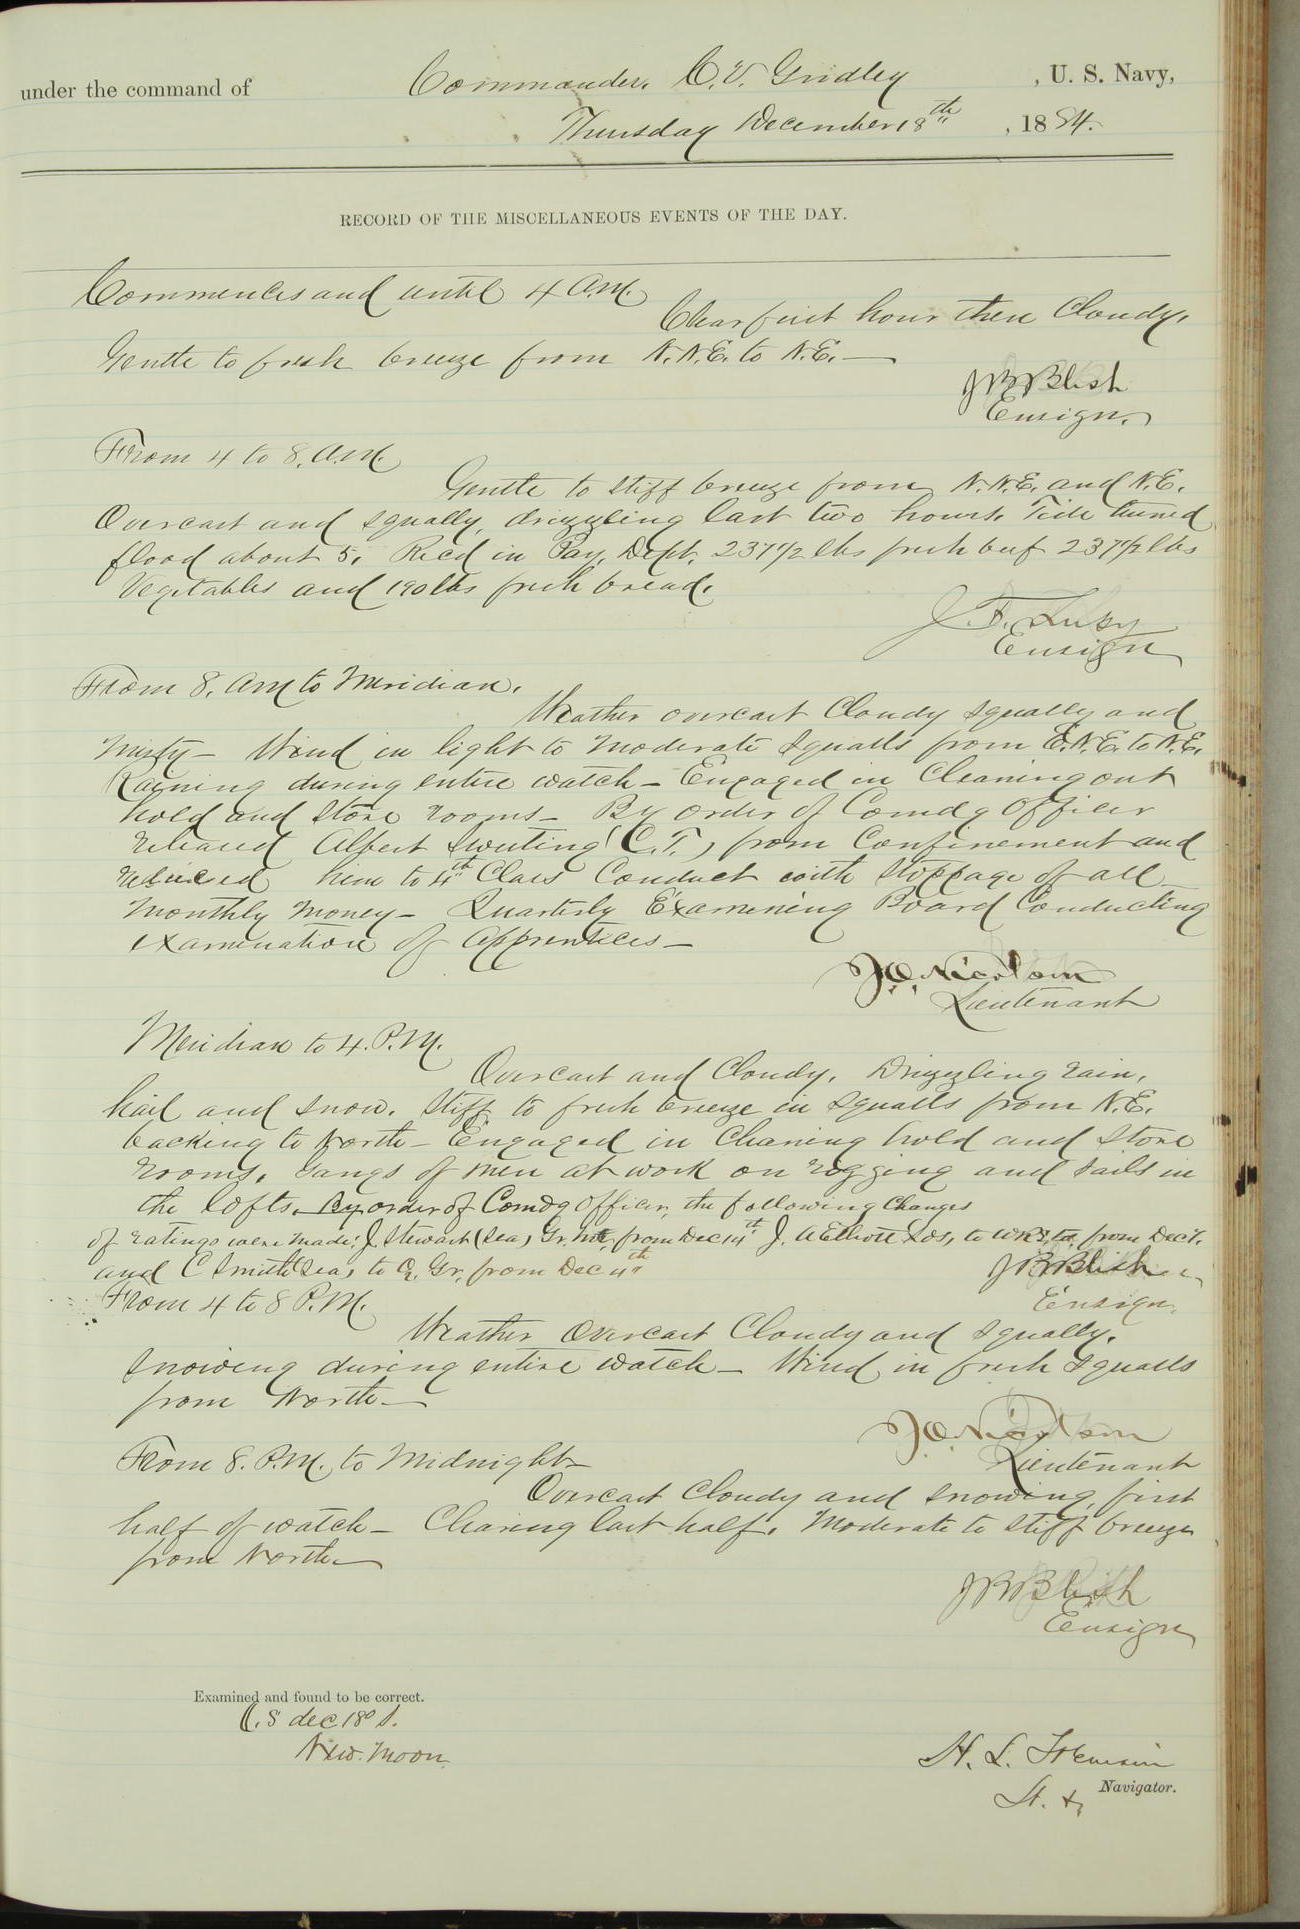 under the command of Commander C. V. Gridley, U. S. Navy,
Thursday December 18th, 1884.
RECORD OF THE MISCELLANEOUS EVENTS OF THE DAY.
Commences and until 4 A.M.
Clear first hour then Cloudy.
Gentle to fresh breeze from N.N.E. to N.E. —
J B Blish
Ensign.
From 4 to 8. A.M.
Gentle to stiff breeze from N.N.E. and N.E.
Overcast and squally, drizzling last two hours. Tide turned
flood about 5. Recd in Pay. Dept. 237 1/2 lbs fresh beef 237 1/2 lbs
Vegetables and 190 lbs fresh bread.
J. F. Luby
Ensign
From 8. AM to Meridian.
Weather overcast Cloudy squally and
misty — Wind in light to moderate squalls from E.N.E. to N.E.
Raining during entire watch — Engaged in Cleaning out
hold and store rooms — By order of Comdg Officer
released Albert Sweeting (C.T.) from Confinement and
reduced him to 4th Class Conduct with stoppage of all
monthly money — Quarterly Examining Board Conducting
examination of Apprentices —
J.O. Nicolson
Lieutenant
Meridian to 4. P.M.
Overcast and Cloudy. Drizzling rain,
hail and snow. Stiff to fresh breeze in squalls from N.E.
backing to North — Engaged in Cleaning hold and store
rooms. Gangs of men at work on rigging and sails in
the lofts. By order of Comdg Officer, the following changes
of ratings were made: J. Stewart (Sea) from Dec 14th J. A Elliott to from Dec
and C Smith Sea, to Q. Gr. from Dec
J B Blish
From 4 to 8 P.M.
Ensign.
Weather Overcast Cloudy and squally.
Snowing during entire watch — Wind in fresh squalls
from North —
J.O. Nicolson
Lieutenant
From 8. P.M. to Midnight
Overcast Cloudy and snowing first
half of watch — Clearing last half. Moderate to stiff breeze
from North —
J B Blish
Ensign
Examined and found to be correct.
dec 18
New Moon
H. L.
Navigator.